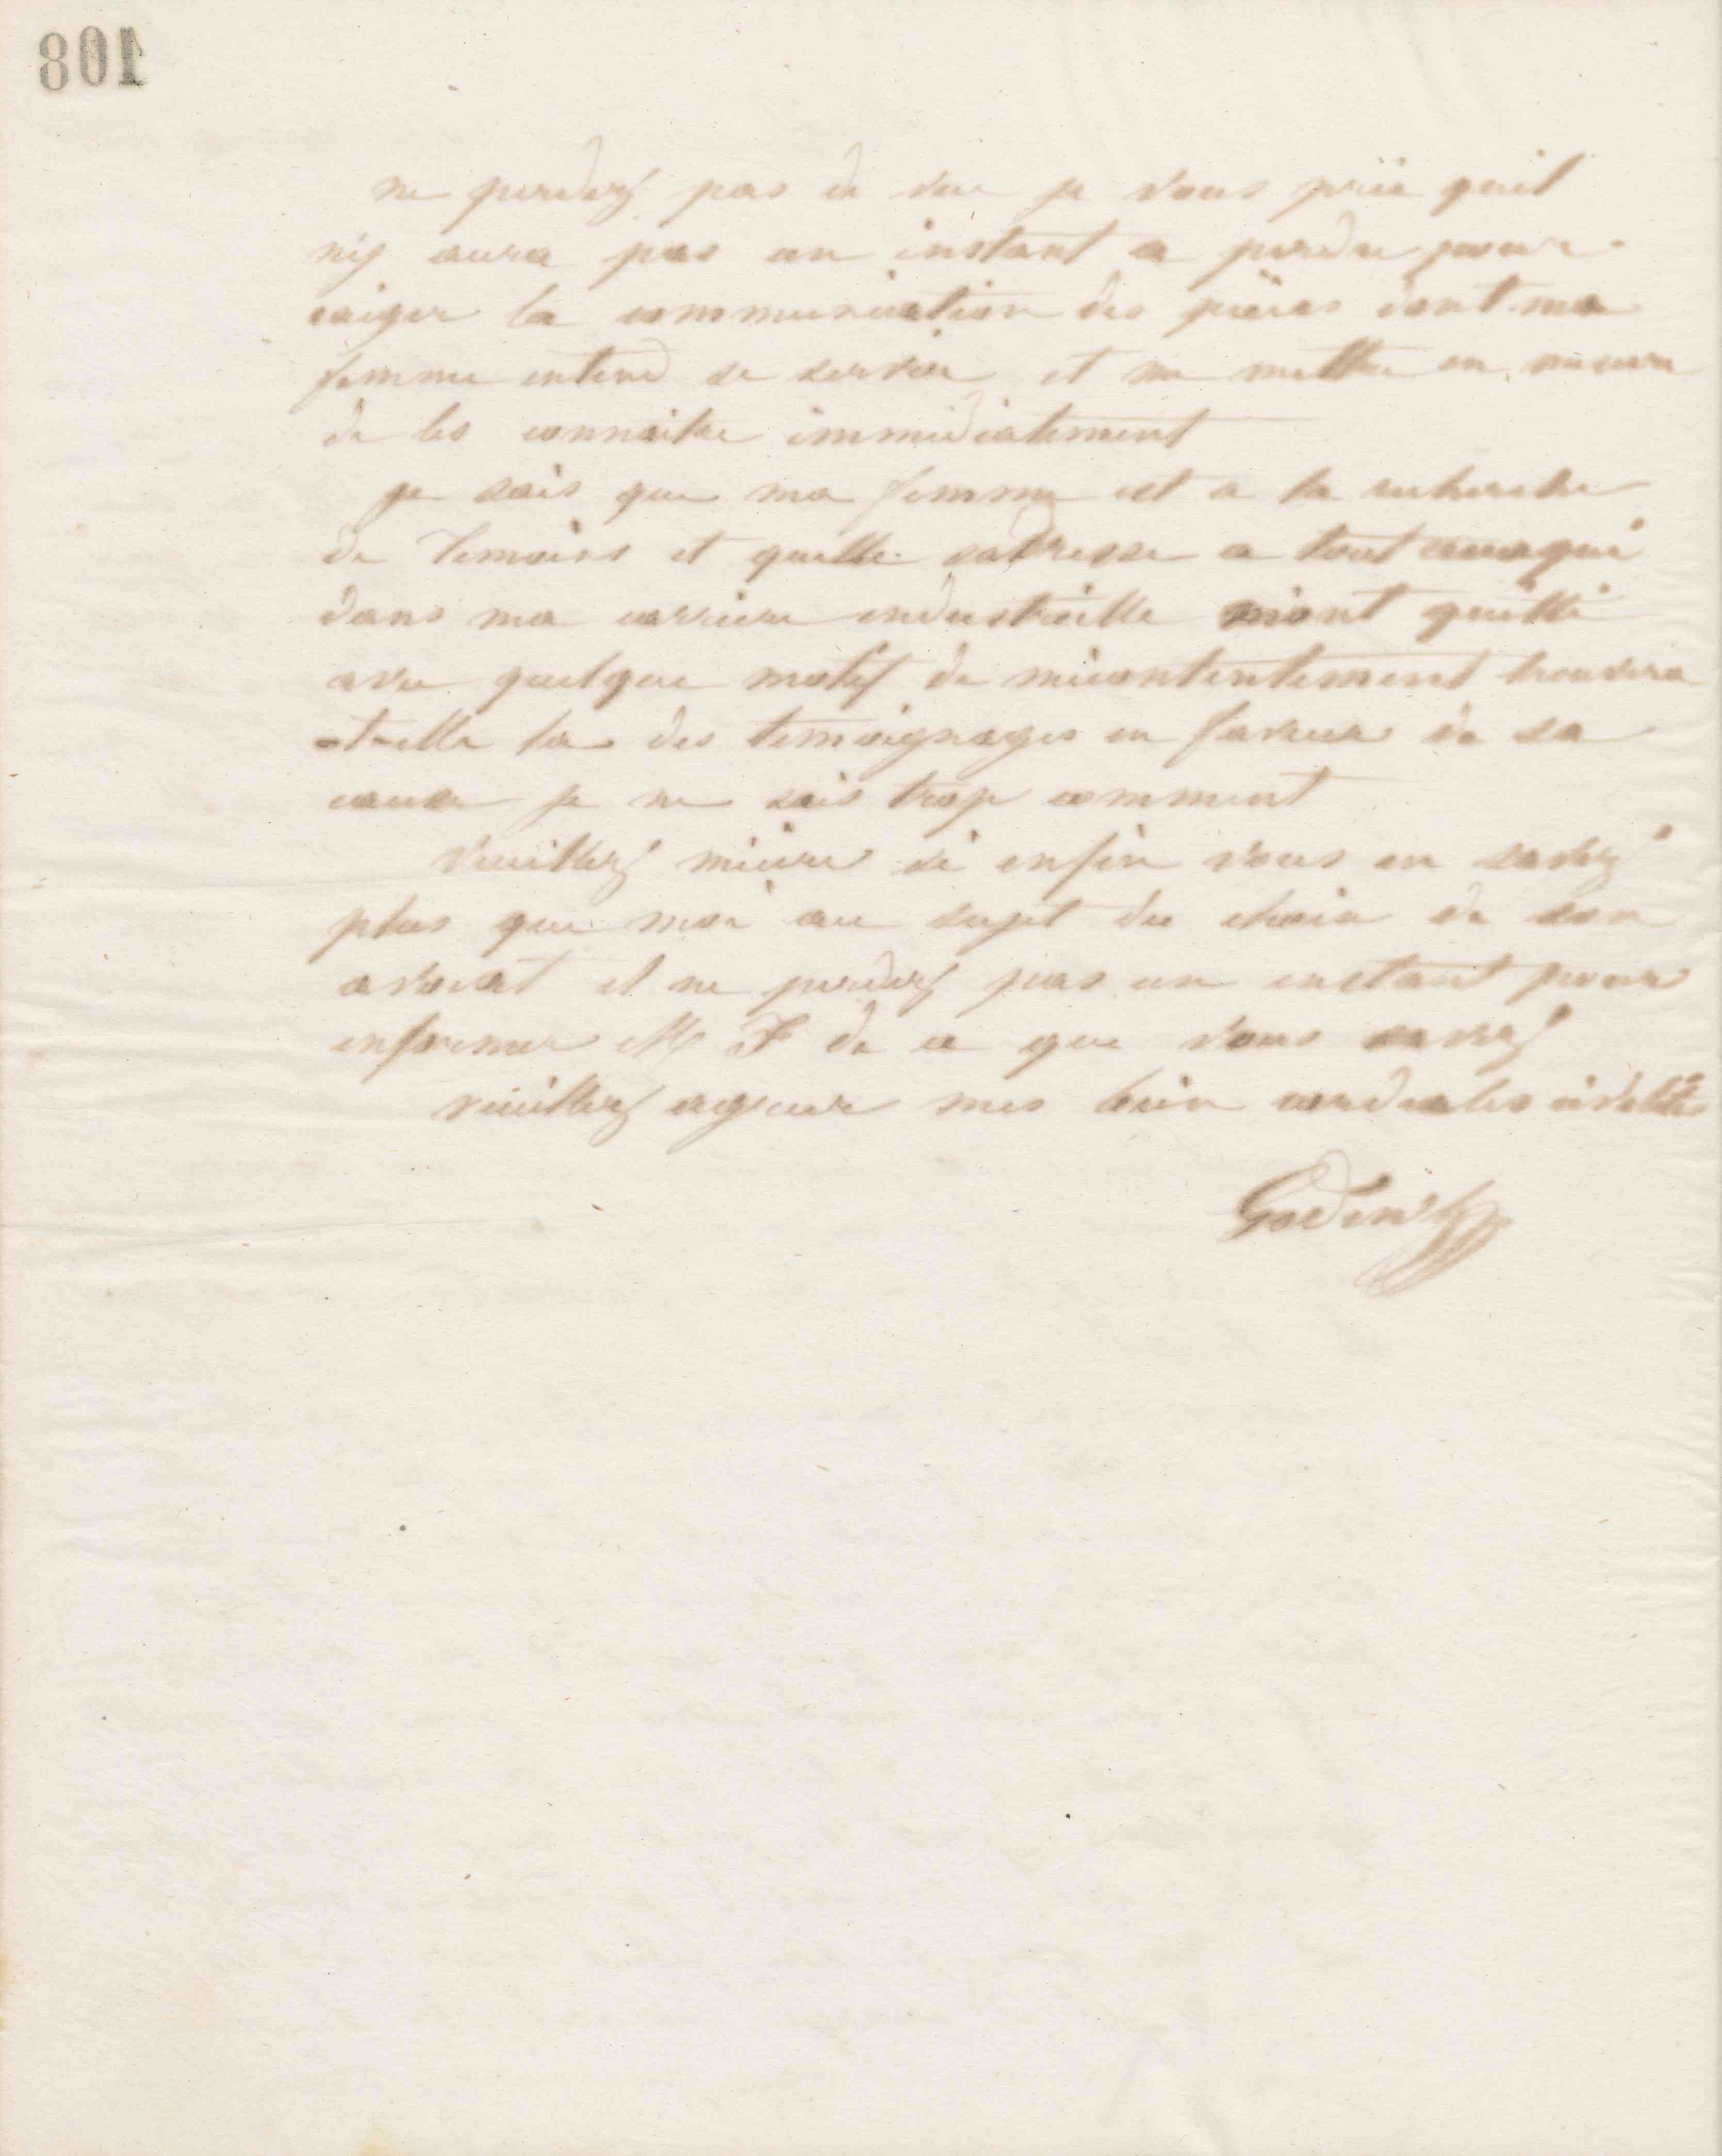 108
ne perdez pas de vue je vous prie quil
niy aura pas un instant a perdre pour
exiger la communication des pièces dont ma
femme entend se servir et me mettre en mesure
de les connaitre immédiatement
je sais que ma femme est a la recherche
de temoins et quelle sadresse a tout ceux qui
dans ma carriere industrielle mont quitté
avec quelque motif de mécontentement trouvera
-t-elle la des temoignages en faveur de sa
cause je ne sais trop comment
Veuillez si enfin vous en savez
plus que moi au sujet du choix de son
avocat et ne perdez pas un instant pour
informer M F de ce que vous savez
veuillez agréer mes bien cordiales civilités
Godin